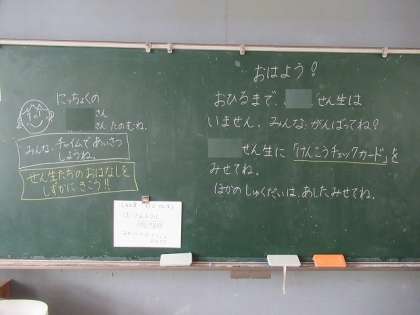 にっちょくの
さん
さん たのむね。
みんな、チャイムであいさつ
しようね。
せん生たちのおはなしを
しずかにきこう!!
おはよう!
おひるまで、 せん生は
いません。みんな、がんばってね?
せん生に「けんこうチェックカード」を
みせてね。
ほかのしゅくだいは、あした、みせてね。